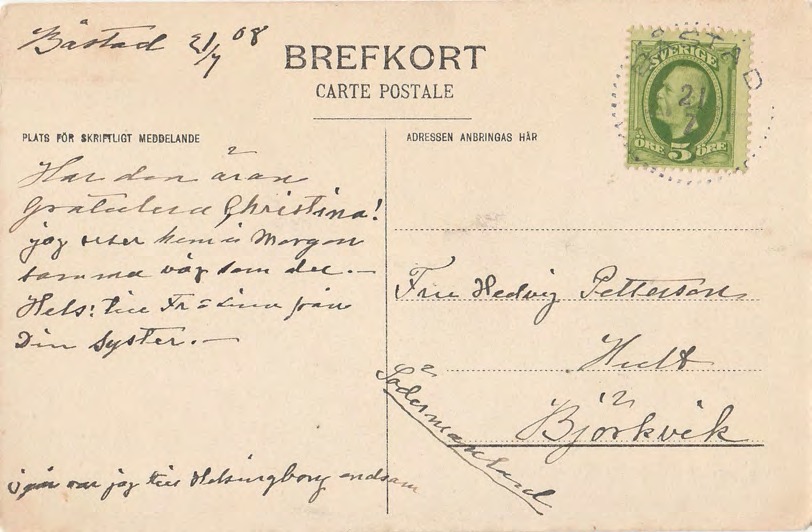 Båstad 21/7 08
BREFKORT
CARTE POSTALE
SVERIGE
5
ÖRE ÖRE
BÅSTAD
21
7
PLATS FÖR SKRIFTLIGT MEDDELANDE
Har den äran
Gratulera Christina!
jag reser hem i Morgon
samma väg som du.—
Hels: till Fr från
Din Syster.—
igår var jag till Helsingborg
ADRESSEN ANBRINGAS HÄR
Fru Hedvig Petterson
Hult
Björkvik
Södermanland